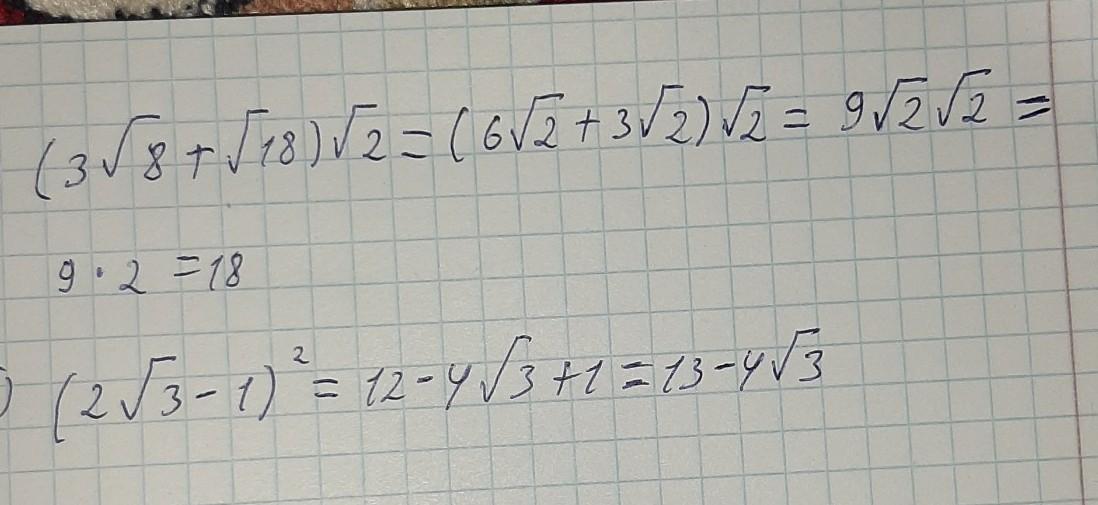 (3√8 + √18)√2 = (6√2 + 3√2)√2 = 9√2√2 =
9 · 2 = 18
) (2√3 - 1)² = 12 - 4√3 + 1 = 13 - 4√3